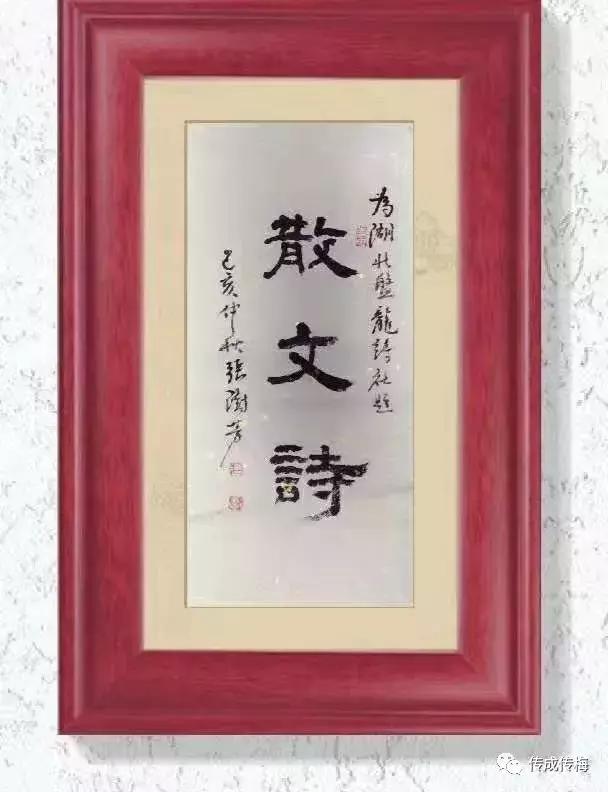 为湖北盤龍詩社題
散文詩
己亥仲秋張澍芳
传成传梅